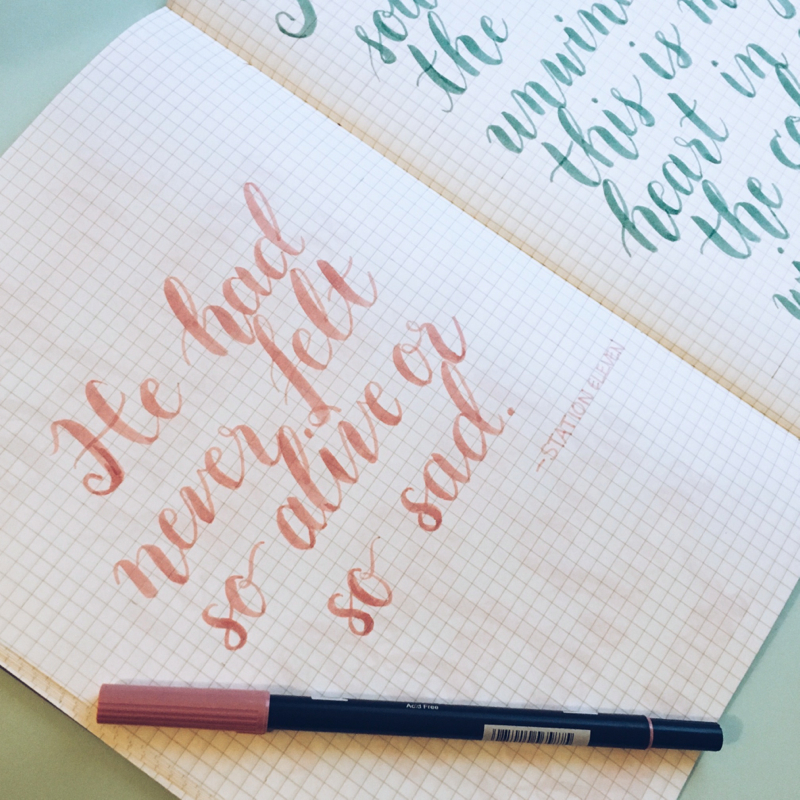 the
unwin
this is
heart in
the
He had
never felt
so alive or
so sad.
~STATION ELEVEN
Acid Free